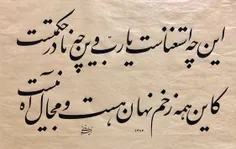 این چه استغناست یارب وین چه نادر حکمتست
کاین همه زخم نهان هست و مجال آه نیست